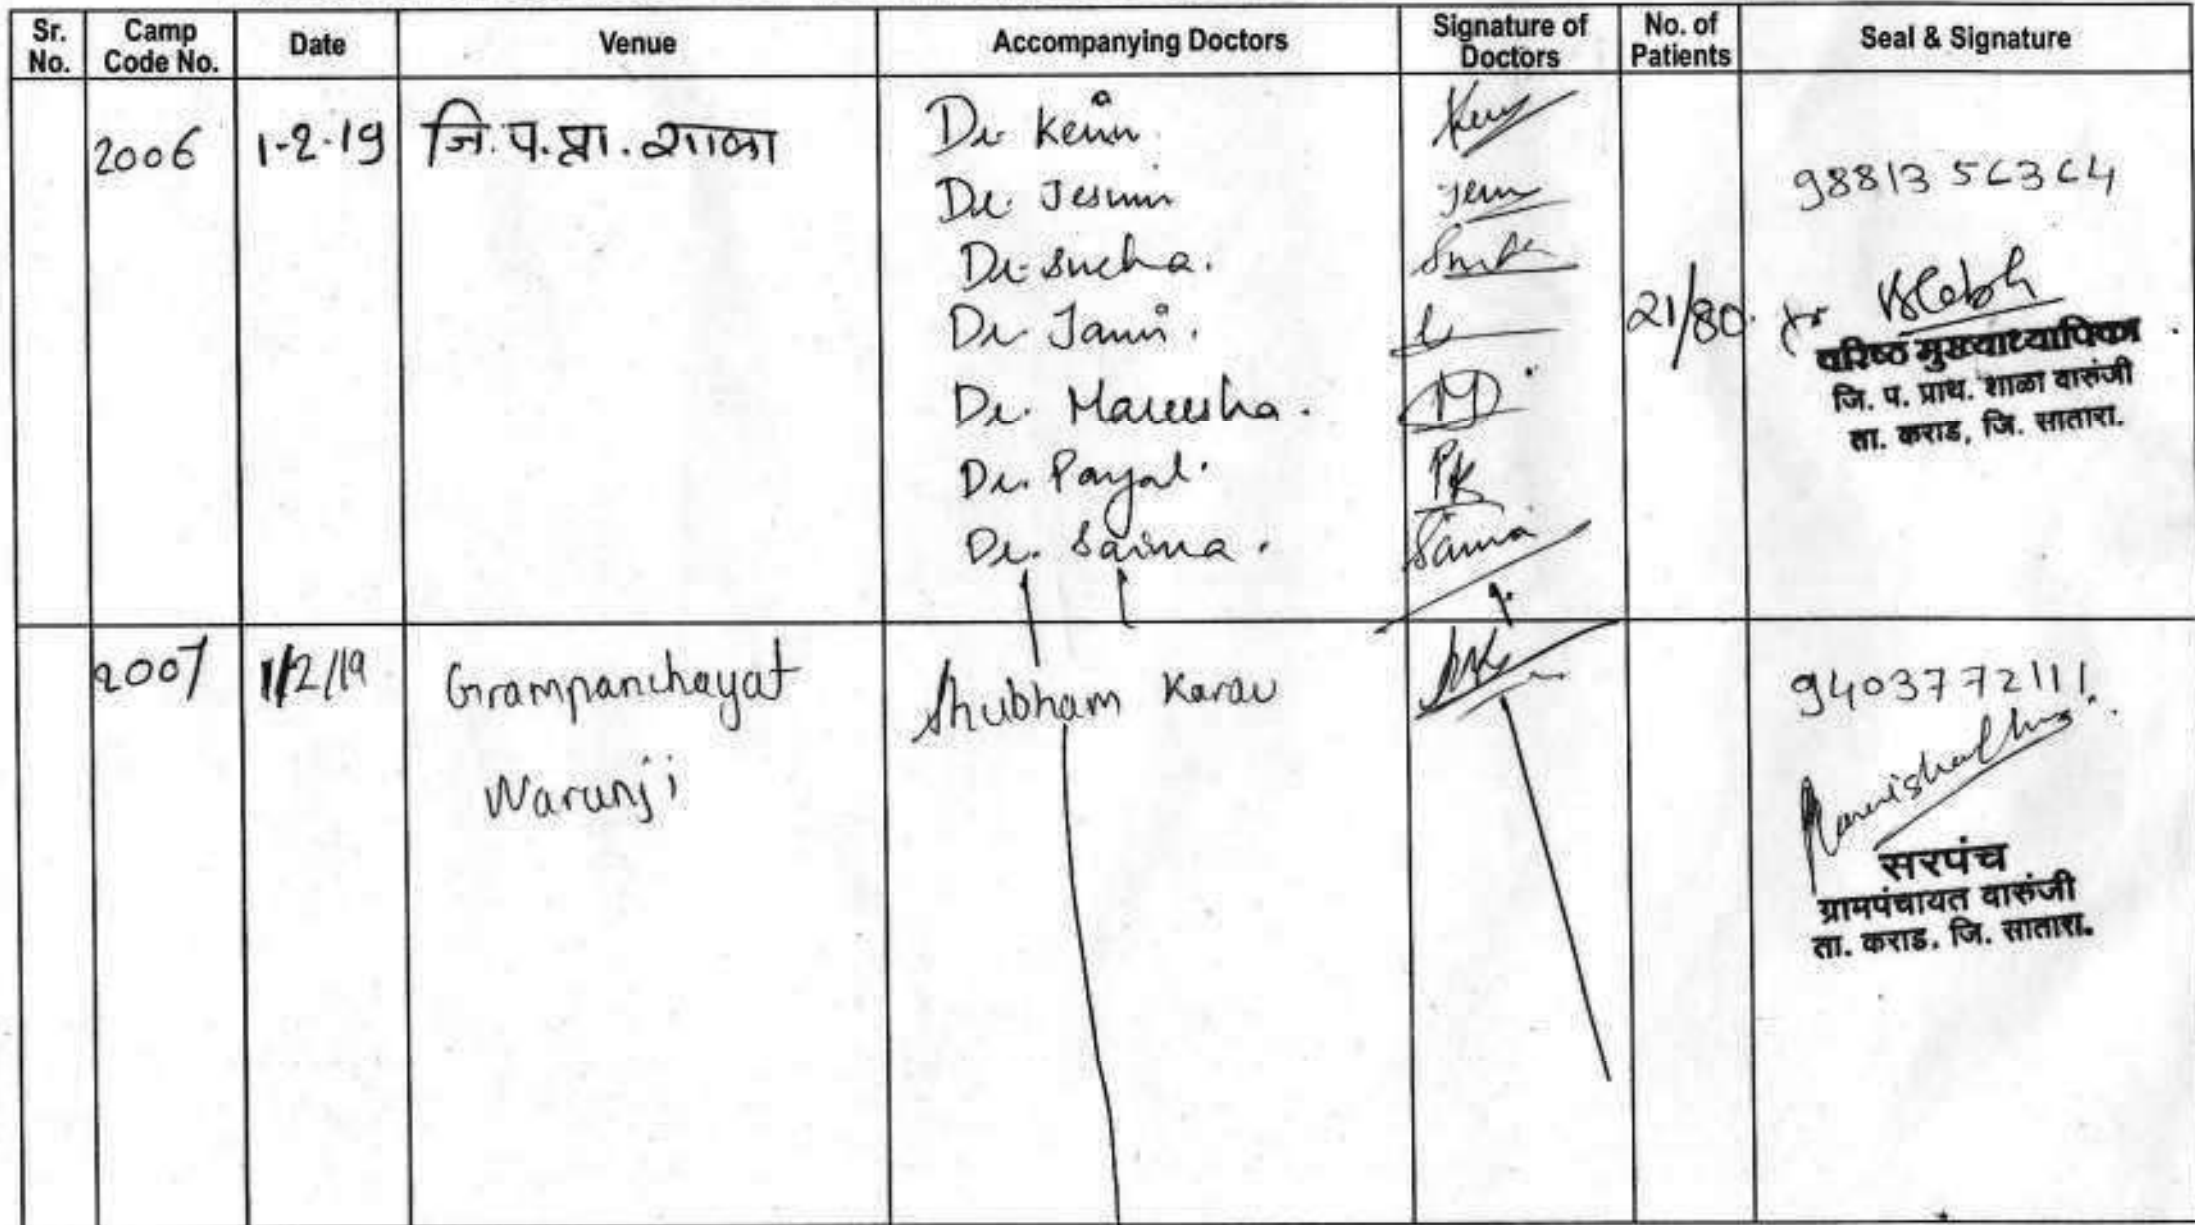 Sr. No. Camp Code No. Date Venue Accompanying Doctors Signature of Doctors No. of Patients Seal & Signature
2006 1-2-19 जि.प.प्रा.शाळा
Dr Kevin
Dr. Jesmin
Dr. Sucha.
Dr Jami.
Dr. Payal.
Dr. Saima.
21/80
98813
वरिष्ठ मुख्याध्यापिका
जि. प. प्राथ. शाळा वारुंजी
ता. कराड, जि. सातारा.
2007 1/2/19 Grampanchayat Warunji
Shubham
9403772111
सरपंच
ग्रामपंचायत वारुंजी
ता. कराड, जि. सातारा.